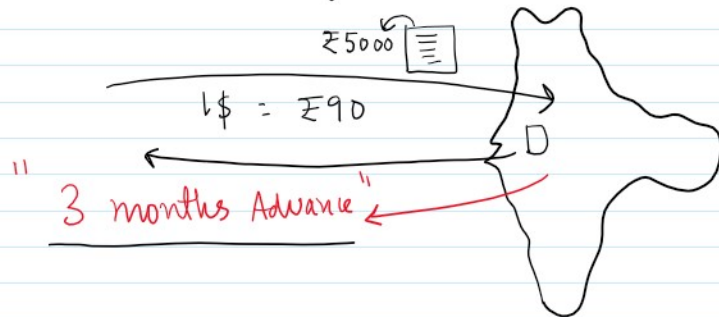 ₹5000
1$ = ₹90
D
"3 months Advance"